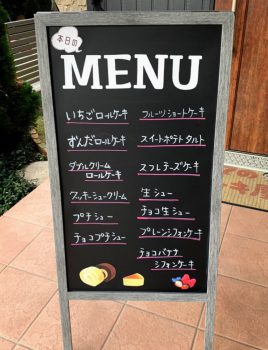 本日の
MENU
いちごロールケーキ
ずんだロールケーキ
ダブルクリーム
ロールケーキ
クッキーシュークリーム
プチシュー
チョコプチシュー
フルーツショートケーキ
スイートポテトタルト
スフレチーズケーキ
生シュー
チョコ生シュー
プレーンシフォンケーキ
チョコバナナ
シフォンケーキ